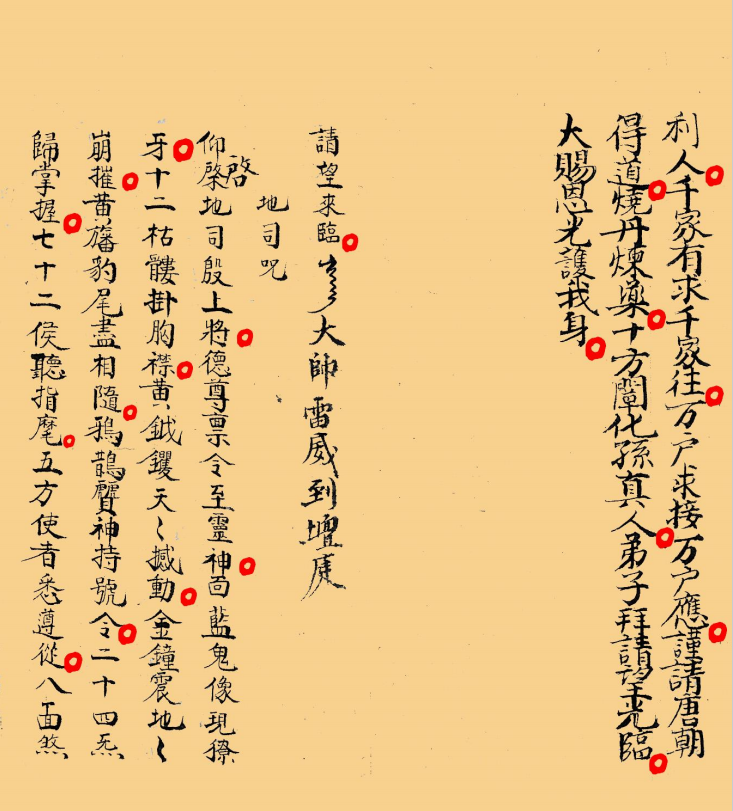 利人千家有求千家往万户求接万户應謹請唐朝
得道燒丹煉藥十方闡化孫真人弟子拜請望光臨
大賜恩光護我身
請望來臨 大帥雷威到壇庭
地司咒
仰啓地司殷上將德尊禀令至靈神面藍鬼像現獠
牙十二枯髏掛胸襟黄鉞鑊天〻撼動金鐘震地〻
崩摧黄旛豹尾盡相隨鴉鵲賫神持號令二十四炁
歸掌握七十二侯聽指麾五方使者悉遵從八面煞